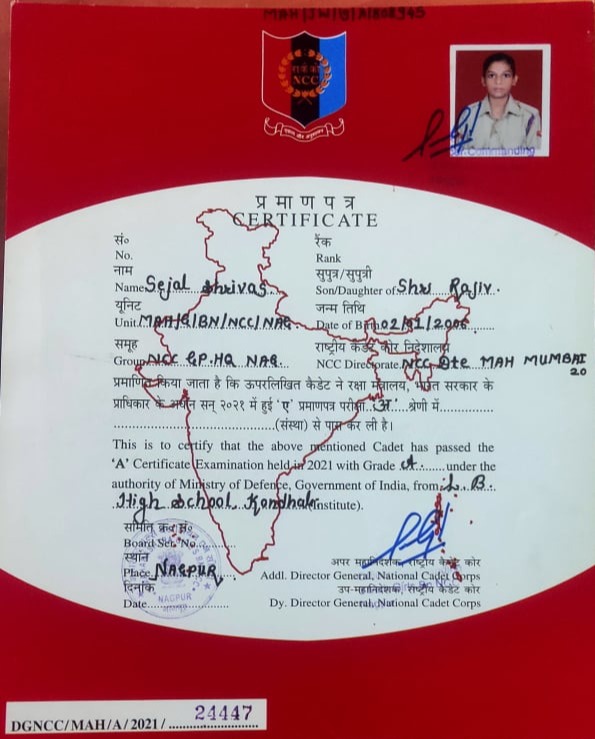 MAH/SW/G/A/808945
रा के को
NCC
एकता और अनुशासन
Commanding
प्रमाणपत्र
CERTIFICATE
सं०
No.
रैंक
Rank
नाम
Name Sejal Shrivas
सुपुत्र/सुपुत्री
Son/Daughter of Shri Rajiv.
यूनिट
Unit MAH/G/BN/NCC/NAG
जन्म तिथि
Date of Birth 02/01/2006
समूह
Group NCC GP.HQ NAG.
राष्ट्रीय कैडेट कोर निदेशालय
NCC Directorate NCC Dte MAH MUMBAI
20
प्रमाणित किया जाता है कि ऊपरलिखित कैडेट ने रक्षा मंत्रालय, भारत सरकार के
प्राधिकार के अधीन सन् २०२१ में हुई 'ए' प्रमाणपत्र परीक्षा 'अ' श्रेणी में
(संस्था) से पास कर ली है।
This is to certify that the above mentioned Cadet has passed the
'A' Certificate Examination held in 2021 with Grade A under the
authority of Ministry of Defence, Government of India, from L. B.
High School, Kondhali (Institute).
Board Ser. No.
स्थान
Place NAGPUR
NAGPUR
Date
अपर महानिदेशक, राष्ट्रीय कैडेट कोर
Addl. Director General, National Cadet Corps
उप-महानिदेशक, राष्ट्रीय कैडेट कोर
Dy. Director General, National Cadet Corps
DGNCC/MAH/A/2021/ 24447